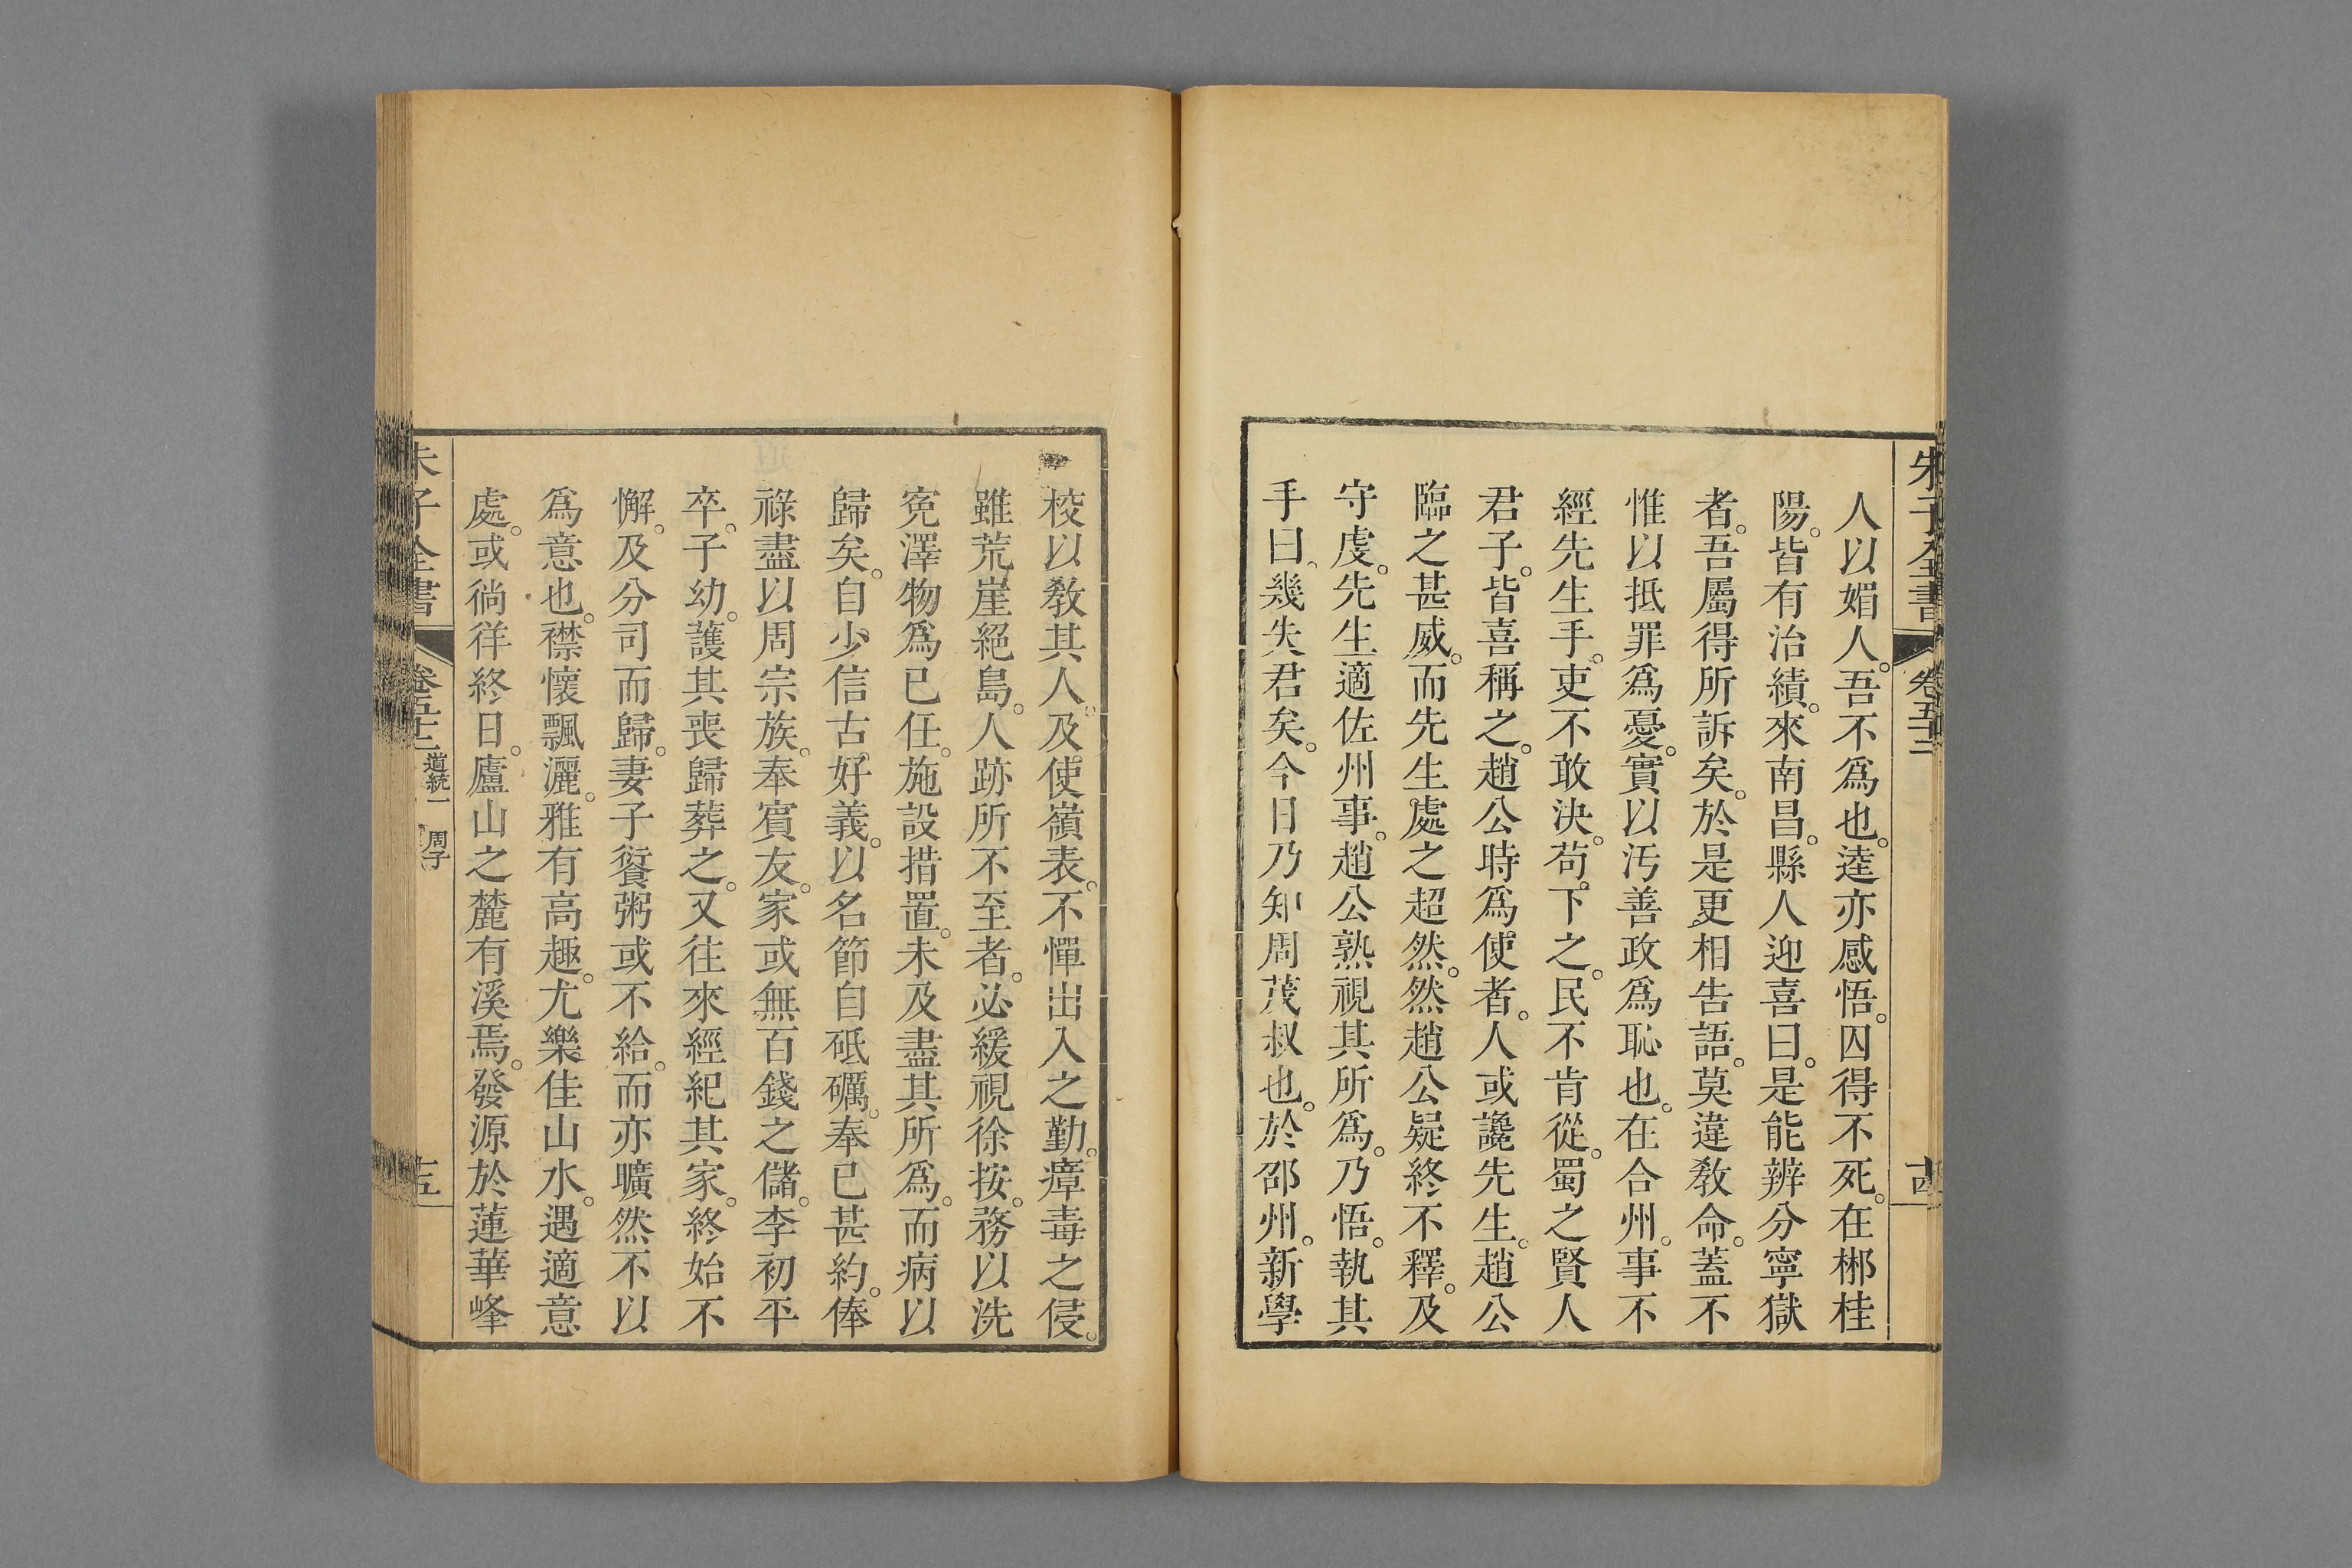 朱子全書 卷五十二 十四
人以媚人。吾不爲也。逵亦感悟。囚得不死。在郴桂
陽。皆有治績。來南昌。縣人迎喜曰。是能辨分寧獄
者。吾屬得所訴矣。於是更相告語。莫違敎命。蓋不
惟以抵罪爲憂。實以汚善政爲恥也。在合州。事不
經先生手。吏不敢決。苟下之。民不肯從。蜀之賢人
君子。皆喜稱之。趙公時爲使者。人或讒先生。趙公
臨之甚威。而先生處之超然。然趙公疑終不釋。及
守虔。先生適佐州事。趙公熟視其所爲。乃悟。執其
手曰、幾失君矣。今日乃知周茂叔也。於邵州。新學
校以敎其人。及使嶺表。不憚出入之勤。瘴毒之侵。
雖荒崖絕島。人跡所不至者。必緩視徐按。務以洗
寃澤物爲己任。施設措置。未及盡其所爲。而病以
歸矣。自少信古好義。以名節自砥礪。奉己甚約。俸
祿盡以周宗族。奉賓友。家或無百錢之儲。李初平
卒。子幼。護其喪歸葬之。又往來經紀其家。終始不
懈。及分司而歸。妻子饘粥或不給。而亦曠然不以
爲意也。襟懷飄灑。雅有高趣。尤樂佳山水。遇適意
處。或徜徉終日。廬山之麓有溪焉。發源於蓮華峰
朱子全書 卷五十二 道統一 周子 十五